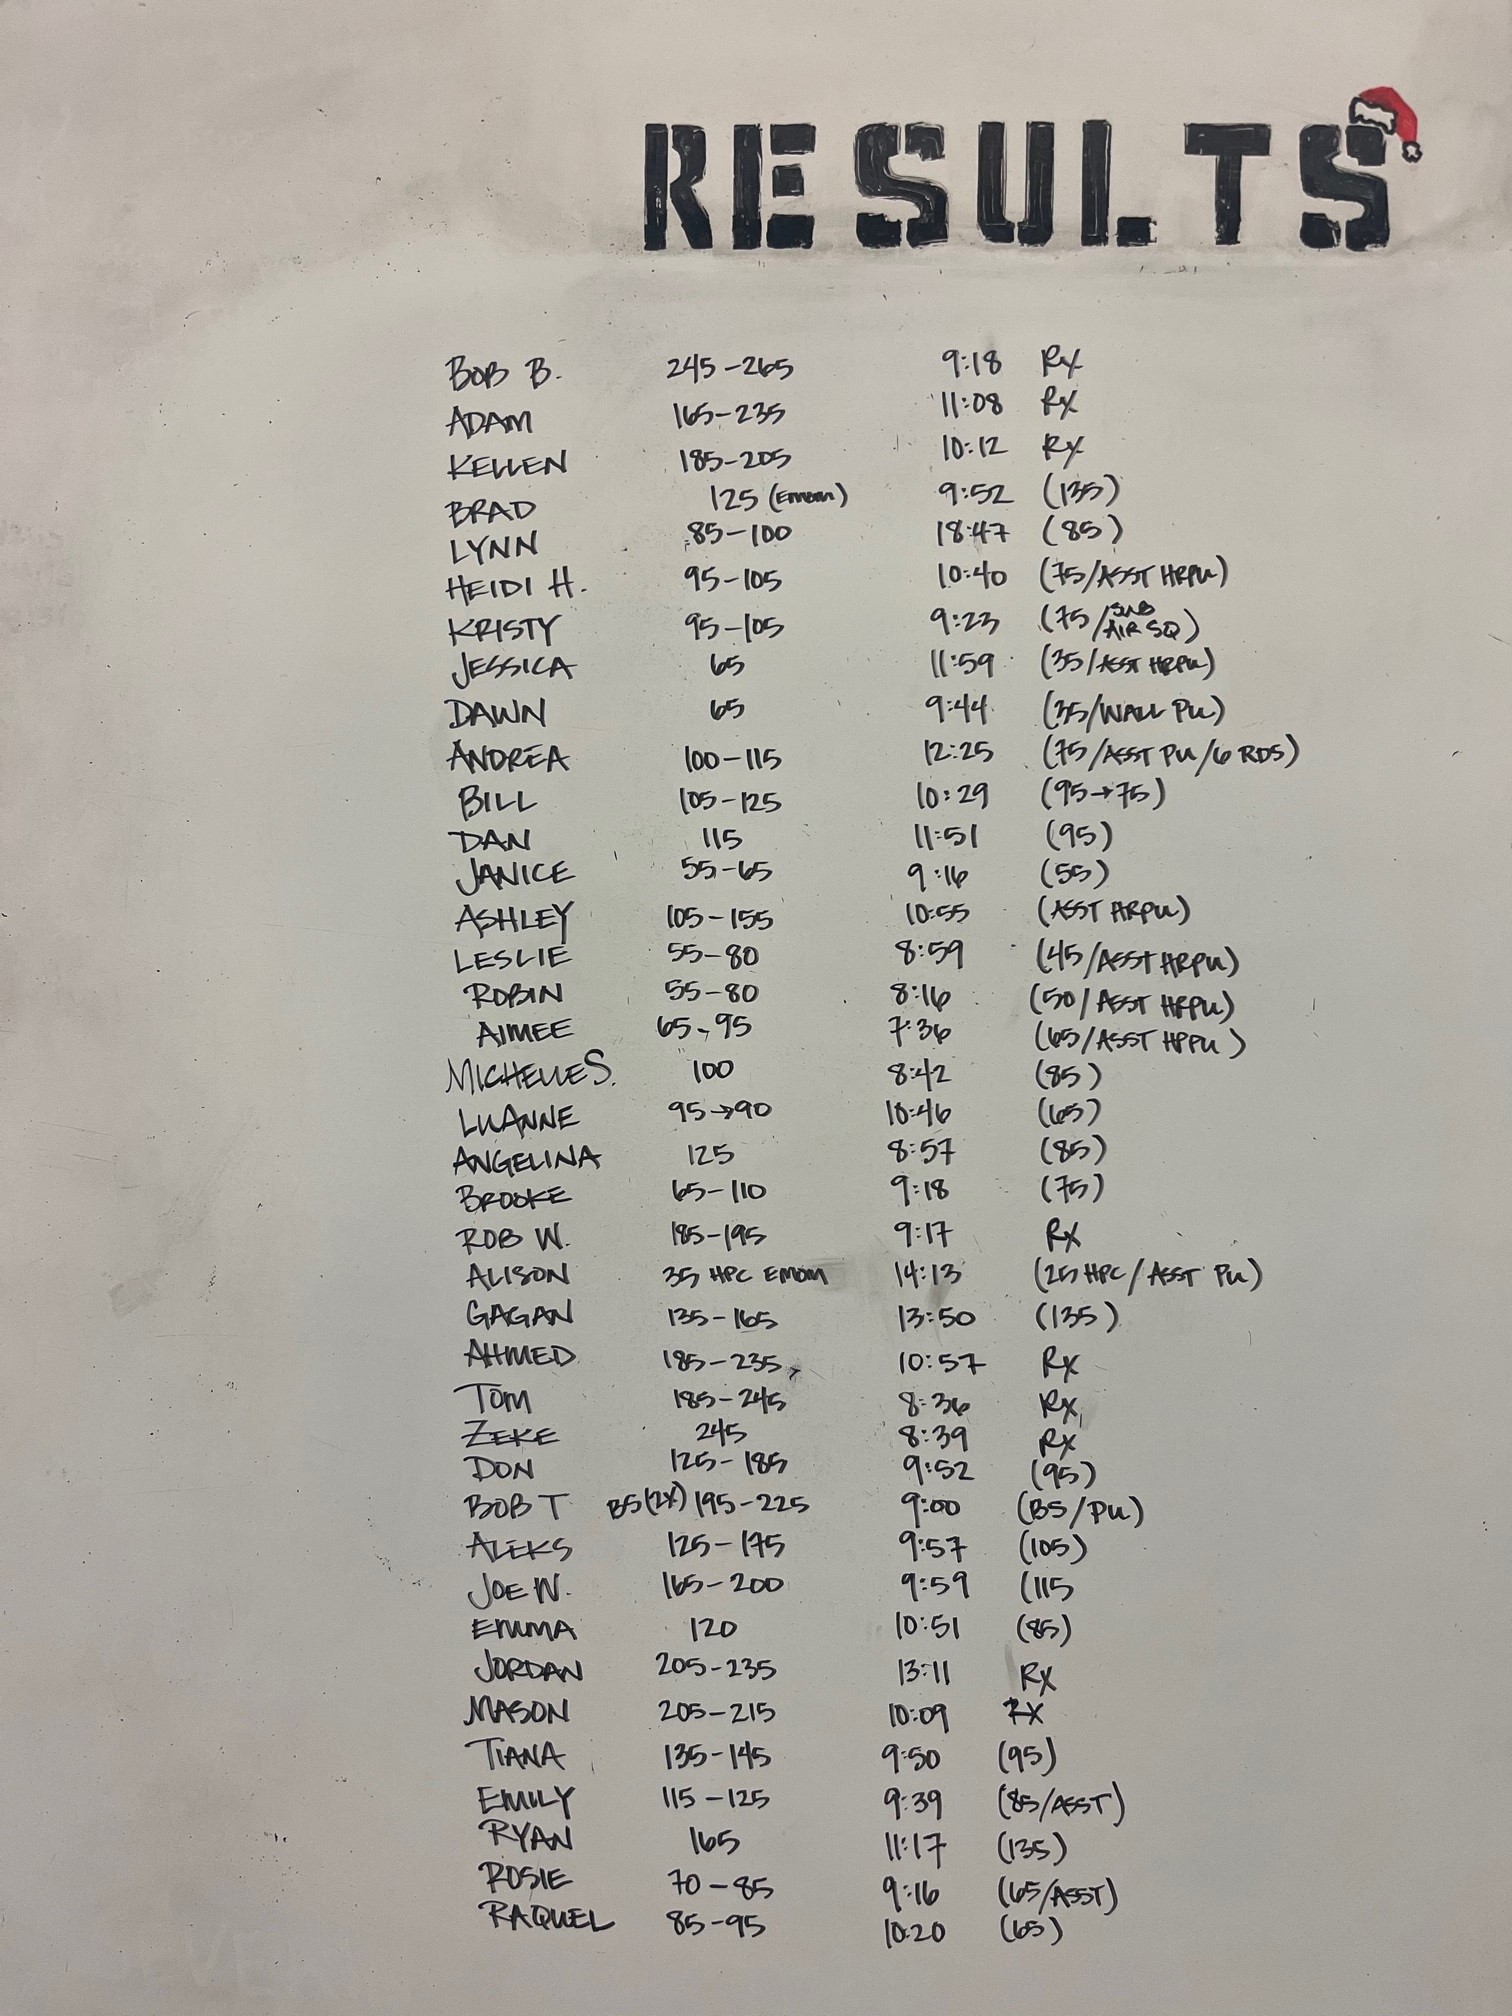 RESULTS
BOB B. 245-265 9:18 Rx
ADAM 165-235 11:08 Rx
KELLEN 185-205 10:12 Rx
BRAD 125 (EMOM) 9:52 (135)
LYNN 85-100 18:47 (85)
HEIDI H. 95-105 10:40 (75/ASST HRPU)
KRISTY 95-105 9:23 (75/SUB AIR SQ)
JESSICA 65 11:59 (35/ASST HRPU)
DAWN 65 9:44 (35/WALL PU)
ANDREA 100-115 12:25 (75/ASST PU/6 RDS)
BILL 105-125 10:29 (95→75)
DAN 115 11:51 (95)
JANICE 55-65 9:16 (55)
ASHLEY 105-155 10:55 (ASST HRPU)
LESLIE 55-80 8:59 (45/ASST HRPU)
ROBIN 55-80 8:16 (50/ASST HRPU)
AIMEE 65-95 7:36 (65/ASST HRPU)
MICHELLE S. 100 8:42 (85)
LUANNE 95→90 10:46 (65)
ANGELINA 125 8:57 (85)
BROOKE 65-110 9:18 (75)
ROB W. 185-195 9:17 Rx
ALISON 35 HPC EMOM 14:13 (25 HPC/ASST PU)
GAGAN 135-165 13:50 (135)
AHMED 185-235 10:57 Rx
TOM 185-245 8:36 Rx
ZEKE 245 8:39 Rx
DON 125-185 9:52 (95)
BOB T BS(2X) 195-225 9:00 (BS/PU)
ALEKS 125-175 9:57 (105)
JOE W. 165-200 9:59 (115
EMMA 120 10:51 (85)
JORDAN 205-235 13:11 Rx
MASON 205-215 10:09 Rx
TIANA 135-145 9:50 (95)
EMILY 115-125 9:39 (85/ASST)
RYAN 165 11:17 (135)
ROSIE 70-85 9:16 (65/ASST)
RAQUEL 85-95 10:20 (65)